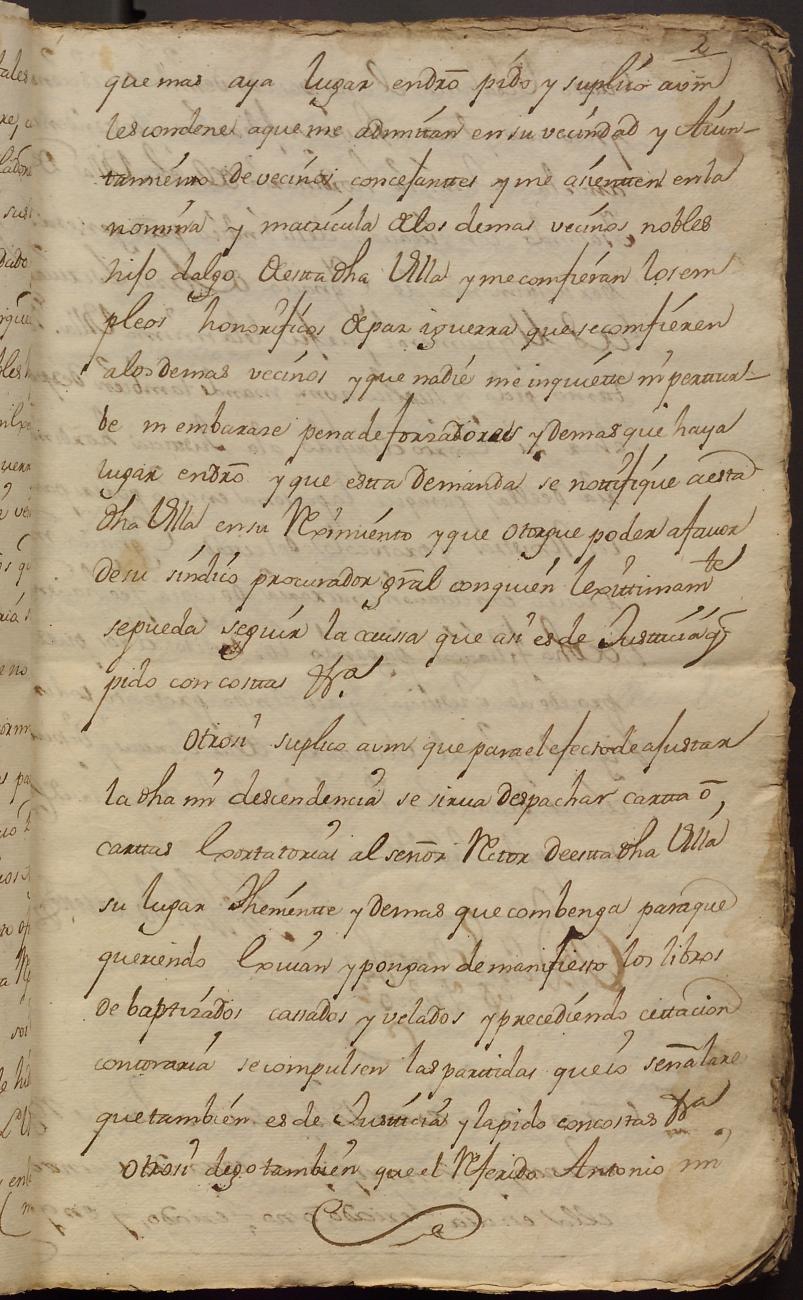 2
que mas aya lugar endrō pido y suplico avm
les condene aque me admitan en su vecindad y Aiun-
tamiento de vecinos concejantes y me asienten en la
nomina y matricula de los demas vecinos nobles
hijo dalgo de esta dha Villa y me comfieran los em
pleos honorificos de paz iguerra que se comfieren
a los demas vecinos y que nadie me inquiette ni perttur-
be ni embaraze pena de forzadores y demas que haya
lugar endrō y que estta demanda se nottifique a esta
dha Villa en su Reximiento y que otorgue poder a favor
de su sindico procurador gral con quien lexittimamte
se pueda seguir la caussa que asi es de Justticia q
pido con costtas &a
Otrosi suplico avm que para el efecto de ajustar
la dha mi descendencia se sirva despachar cartta o,
carttas Exortatorias al señor Rector de estta dha Villa
su lugar Thenientte y demas que combenga para que
queriendo Exivan y pongan de manifiesto los libros
de baptizados cassados y velados y precediendo cittacion
contraria se compulsen las partidas que io señalare
que tambien es de Justticia y la pido con costas &a
Otrosi digo tambien que el Referido Antonio mi